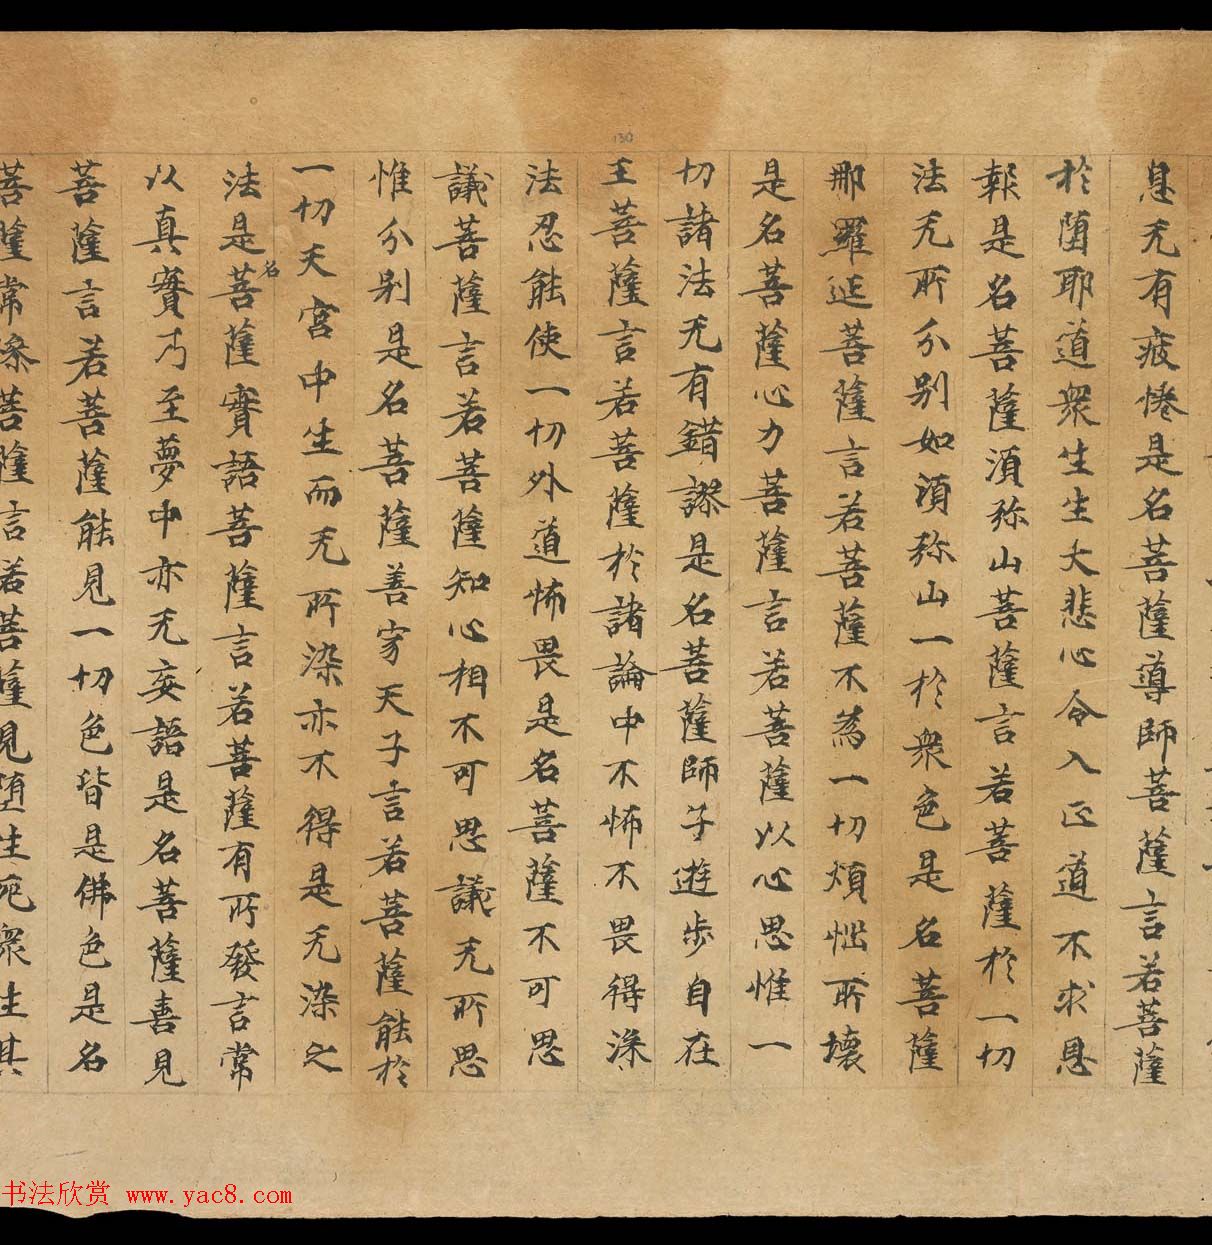 息无有疲惓是名菩薩導師菩薩言若菩薩
於墮耶道衆生生大悲心令入正道不求恩
報是名菩薩須弥山菩薩言若菩薩於一切
法无所分别如須弥山一於衆色是名菩薩
那羅延菩薩言若菩薩不爲一切煩惱所壞
是名菩薩心力菩薩言若菩薩以心思惟一
切諸法无有錯謬是名菩薩師子遊步自在
王菩薩言若菩薩於諸論中不怖不畏得深
法忍能使一切外道怖畏是名菩薩不可思
議菩薩言若菩薩知心相不可思議无所思
惟分别是名菩薩善家天子言若菩薩能於
一切天宮中生而无所染亦不得是无染之
法是名菩薩實語菩薩言若菩薩有所發言常
以真實乃至夢中亦无妄語是名菩薩喜見
菩薩言若菩薩能見一切色皆是佛色是名
菩薩常慘菩薩言若菩薩見墮生死衆生其
130
书法欣赏 www.yac8.com